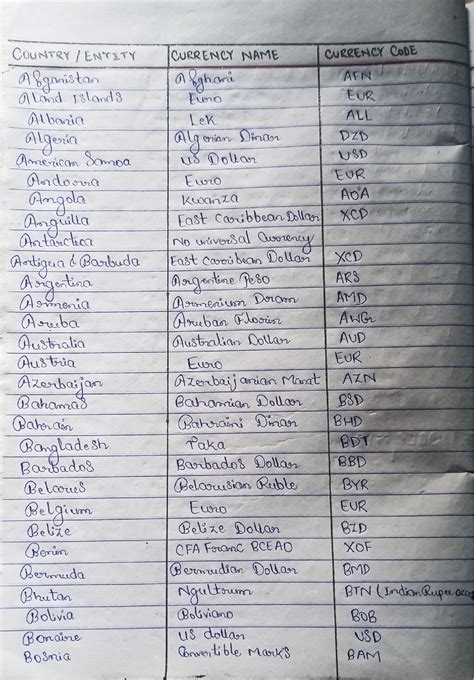 COUNTRY / ENTITY CURRENCY NAME CURRENCY CODE
Afganistan Afghani AFN
Aland Islands Euro EUR
Albania Lek ALL
Algeria Algerian Dinar DZD
American Samoa US Dollar USD
Andorra Euro EUR
Angola Kwanza AOA
Anguilla East Caribbean Dollar XCD
Antarctica No universal Currency
Antigua & Barbuda East Caribbean Dollar XCD
Argentina Argentine Peso ARS
Armenia Armenium Dram AMD
Aruba Aruban Florin AWG
Australia Australian Dollar AUD
Austria Euro EUR
Azerbaijan Azerbaijanian Manat AZN
Bahamas Bahamian Dollar BSD
Bahrain Bahraini Dinar BHD
Bangladesh Taka BDT
Barbados Barbados Dollar BBD
Belarus Belarusian Ruble BYR
Belgium Euro EUR
Belize Belize Dollar BZD
Benin CFA Franc BCEAO XOF
Bermuda Bermudian Dollar BMD
Bhutan Ngultrum BTN (Indian Rupee
Bolivia Boliviano BOB
Bonaire US dollar USD
Bosnia Convertible Marks BAM